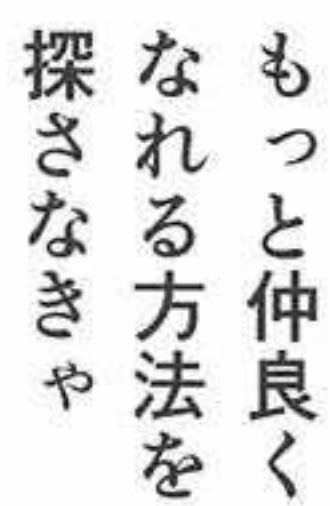 もっと仲良く
なれる方法を
探さなきゃ